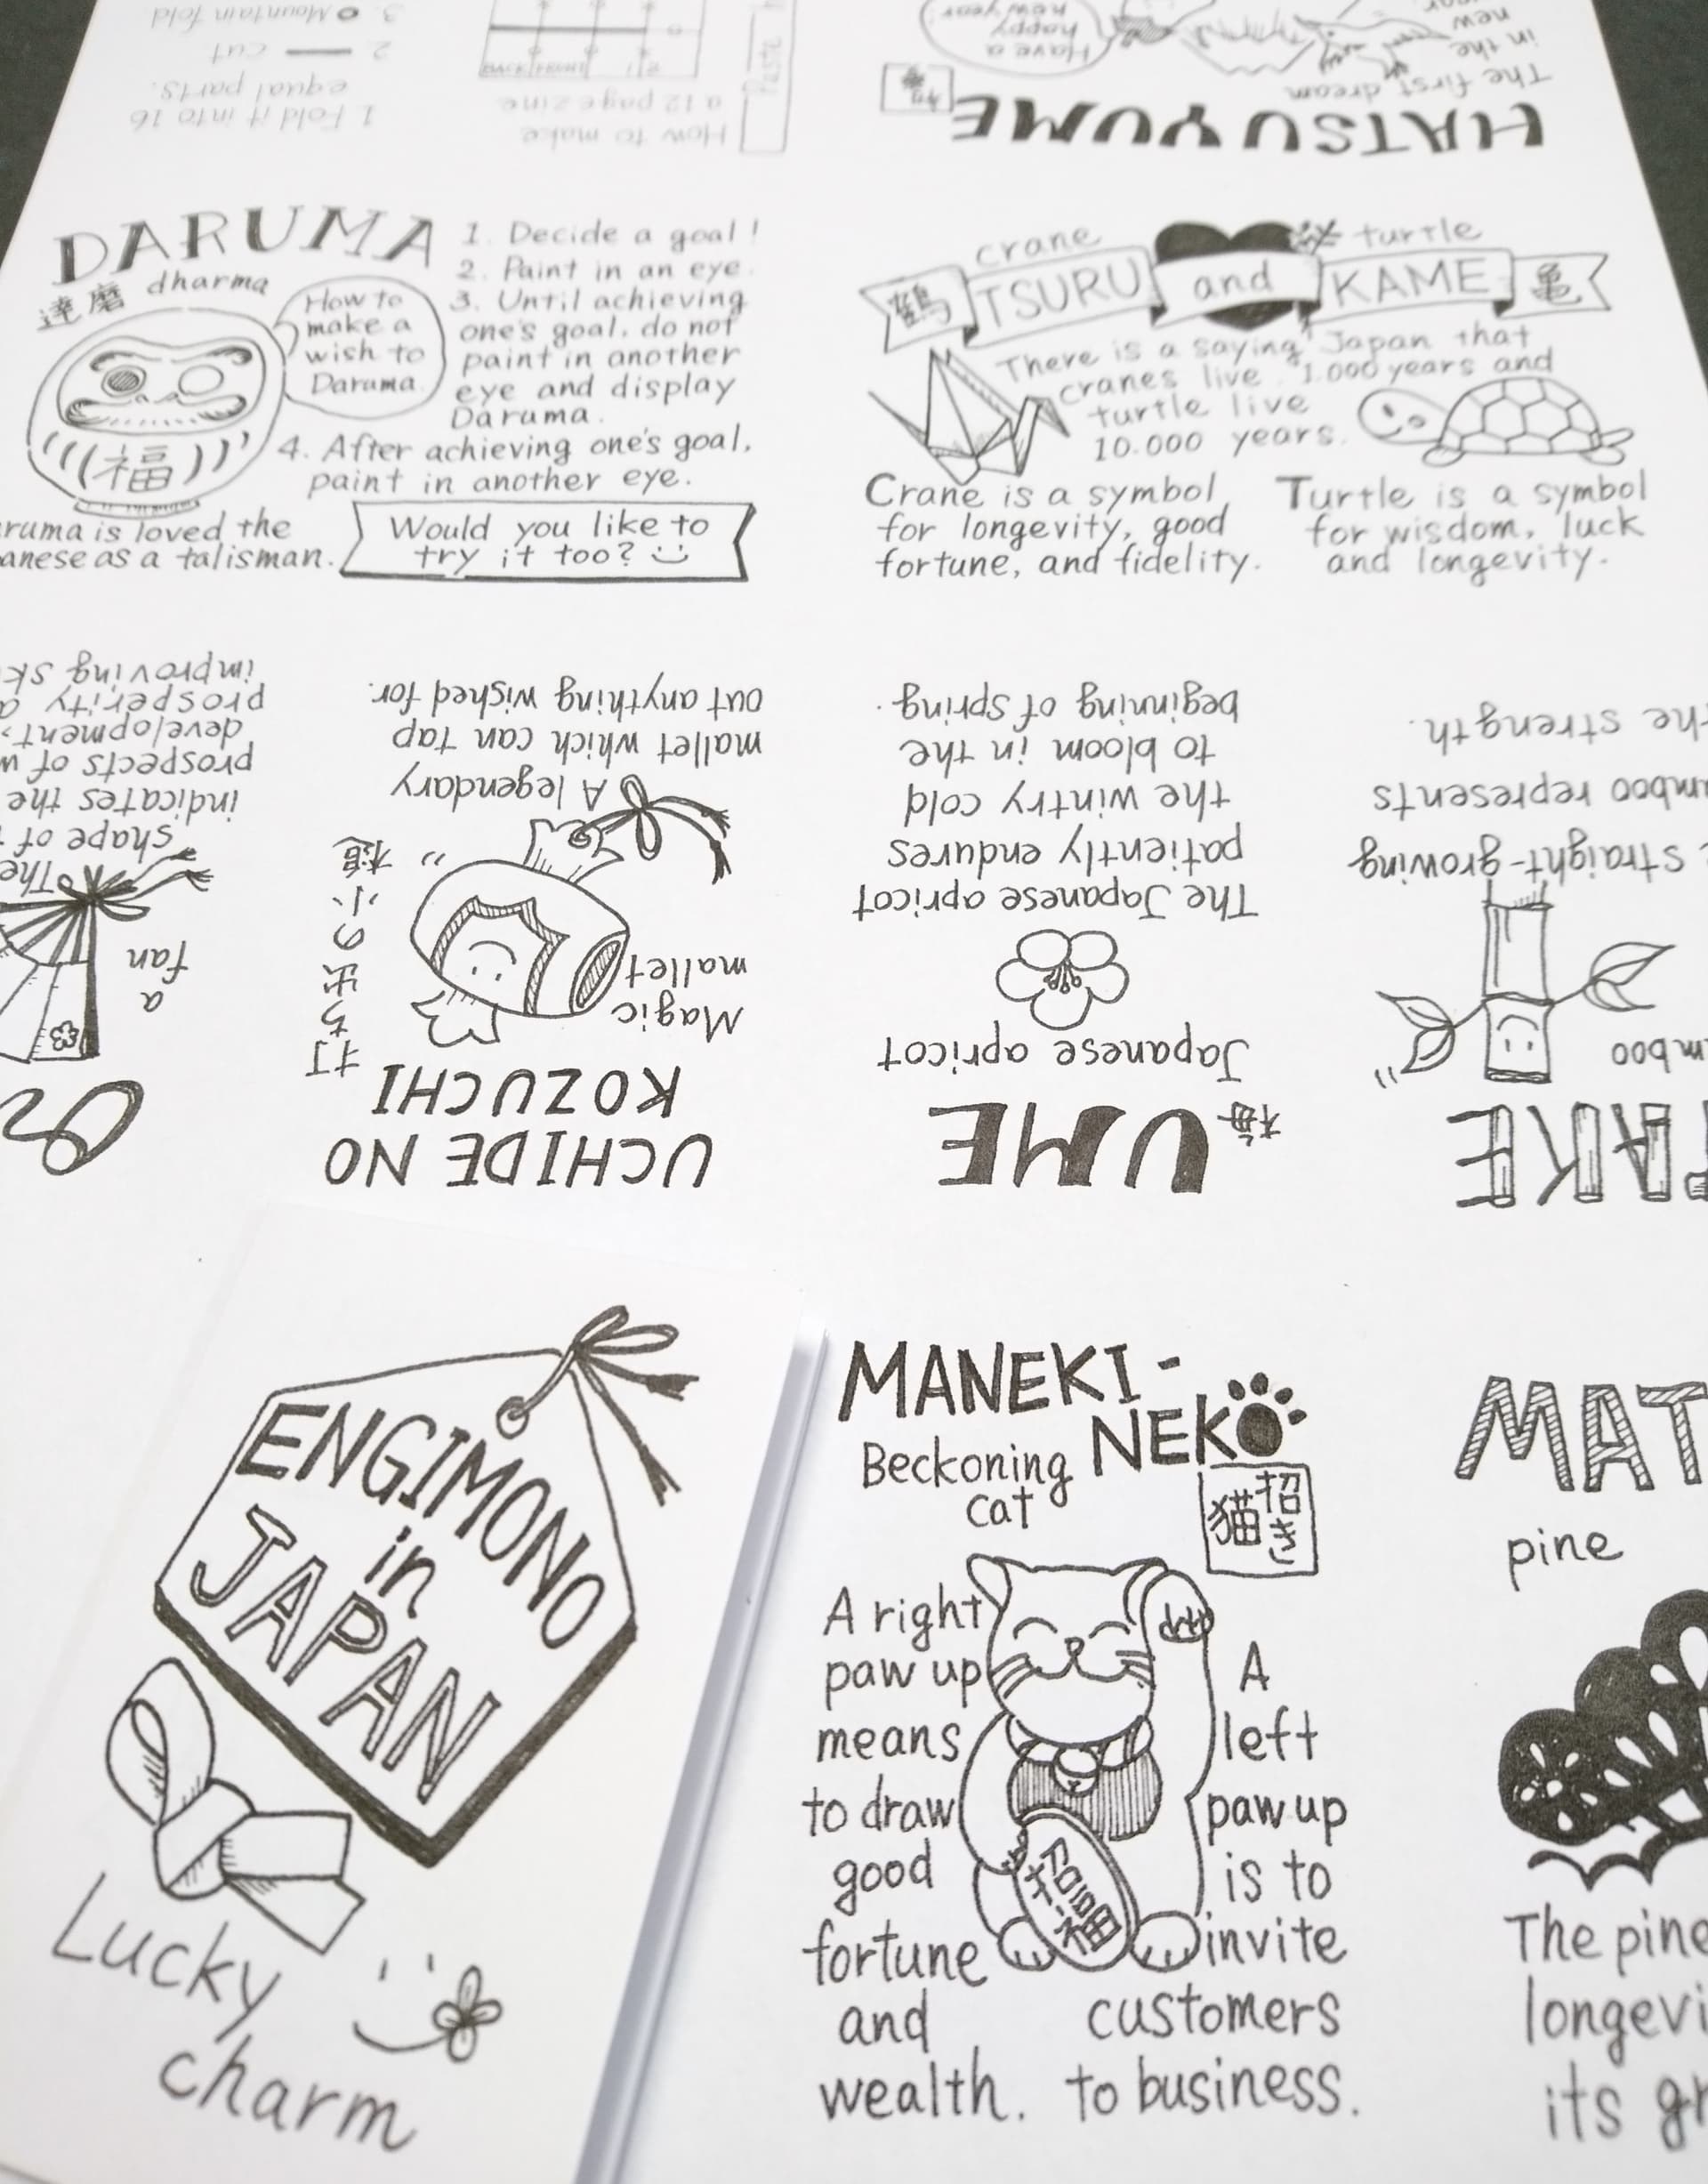 How to make
a 12 page zine
BACK FRONT 1 2
Paste
1 Fold it into 16
equal parts.
2 cut
3. Mountain fold
HATSUYUME
The first dream
in the
new
Have a
happy
new year
DARUMA
dharma
達磨
How to
make a
wish to
Daruma.
福
1. Decide a goal!
2. Paint in an eye.
3. Until achieving
one's goal, do not
paint in another
eye and display
Daruma.
4. After achieving one's goal,
paint in another eye.
ruma is loved the
anese as a talisman.
Would you like to
try it too?
crane
turtle
鶴 TSURU and KAME 亀
There is a saying Japan that
cranes live 1.000 years and
turtle live
10.000 years.
Crane is a symbol
for longevity, good
fortune, and fidelity.
Turtle is a symbol
for wisdom, luck
and longevity.
a
fan
The
shape of
indicates the
prospects of
development,
prosperity
improving
UCHIDE NO
KOZUCHI
打ち出の小槌
Magic
mallet
A legendary
mallet which can tap
out anything wished for.
UME
梅
Japanese apricot
The Japanese apricot
patiently endures
the wintry cold
to bloom in the
beginning of spring.
TAKE
mboo
straight-growing
mboo represents
the strength.
ENGIMONO
in
JAPAN
Lucky
charm
MANEKI-
NEKO
Beckoning
cat
招き
猫
A right
paw up
means
to draw
good
fortune
and
wealth.
A
left
paw up
is to
invite
customers
to business.
招福
MAT
pine
The pine
longevi
its gr